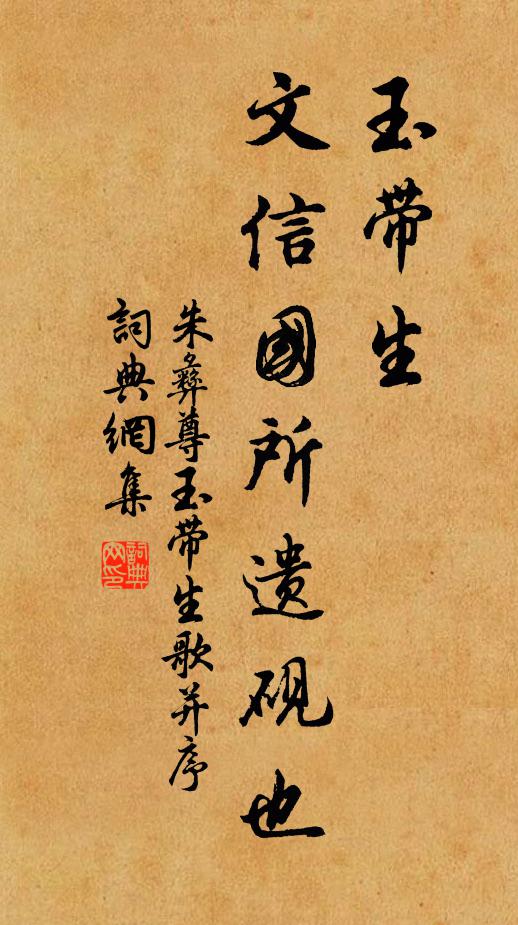 玉带生
文信國所遗砚也
朱彝尊玉带生歌并序
詞典網集
詞典网印